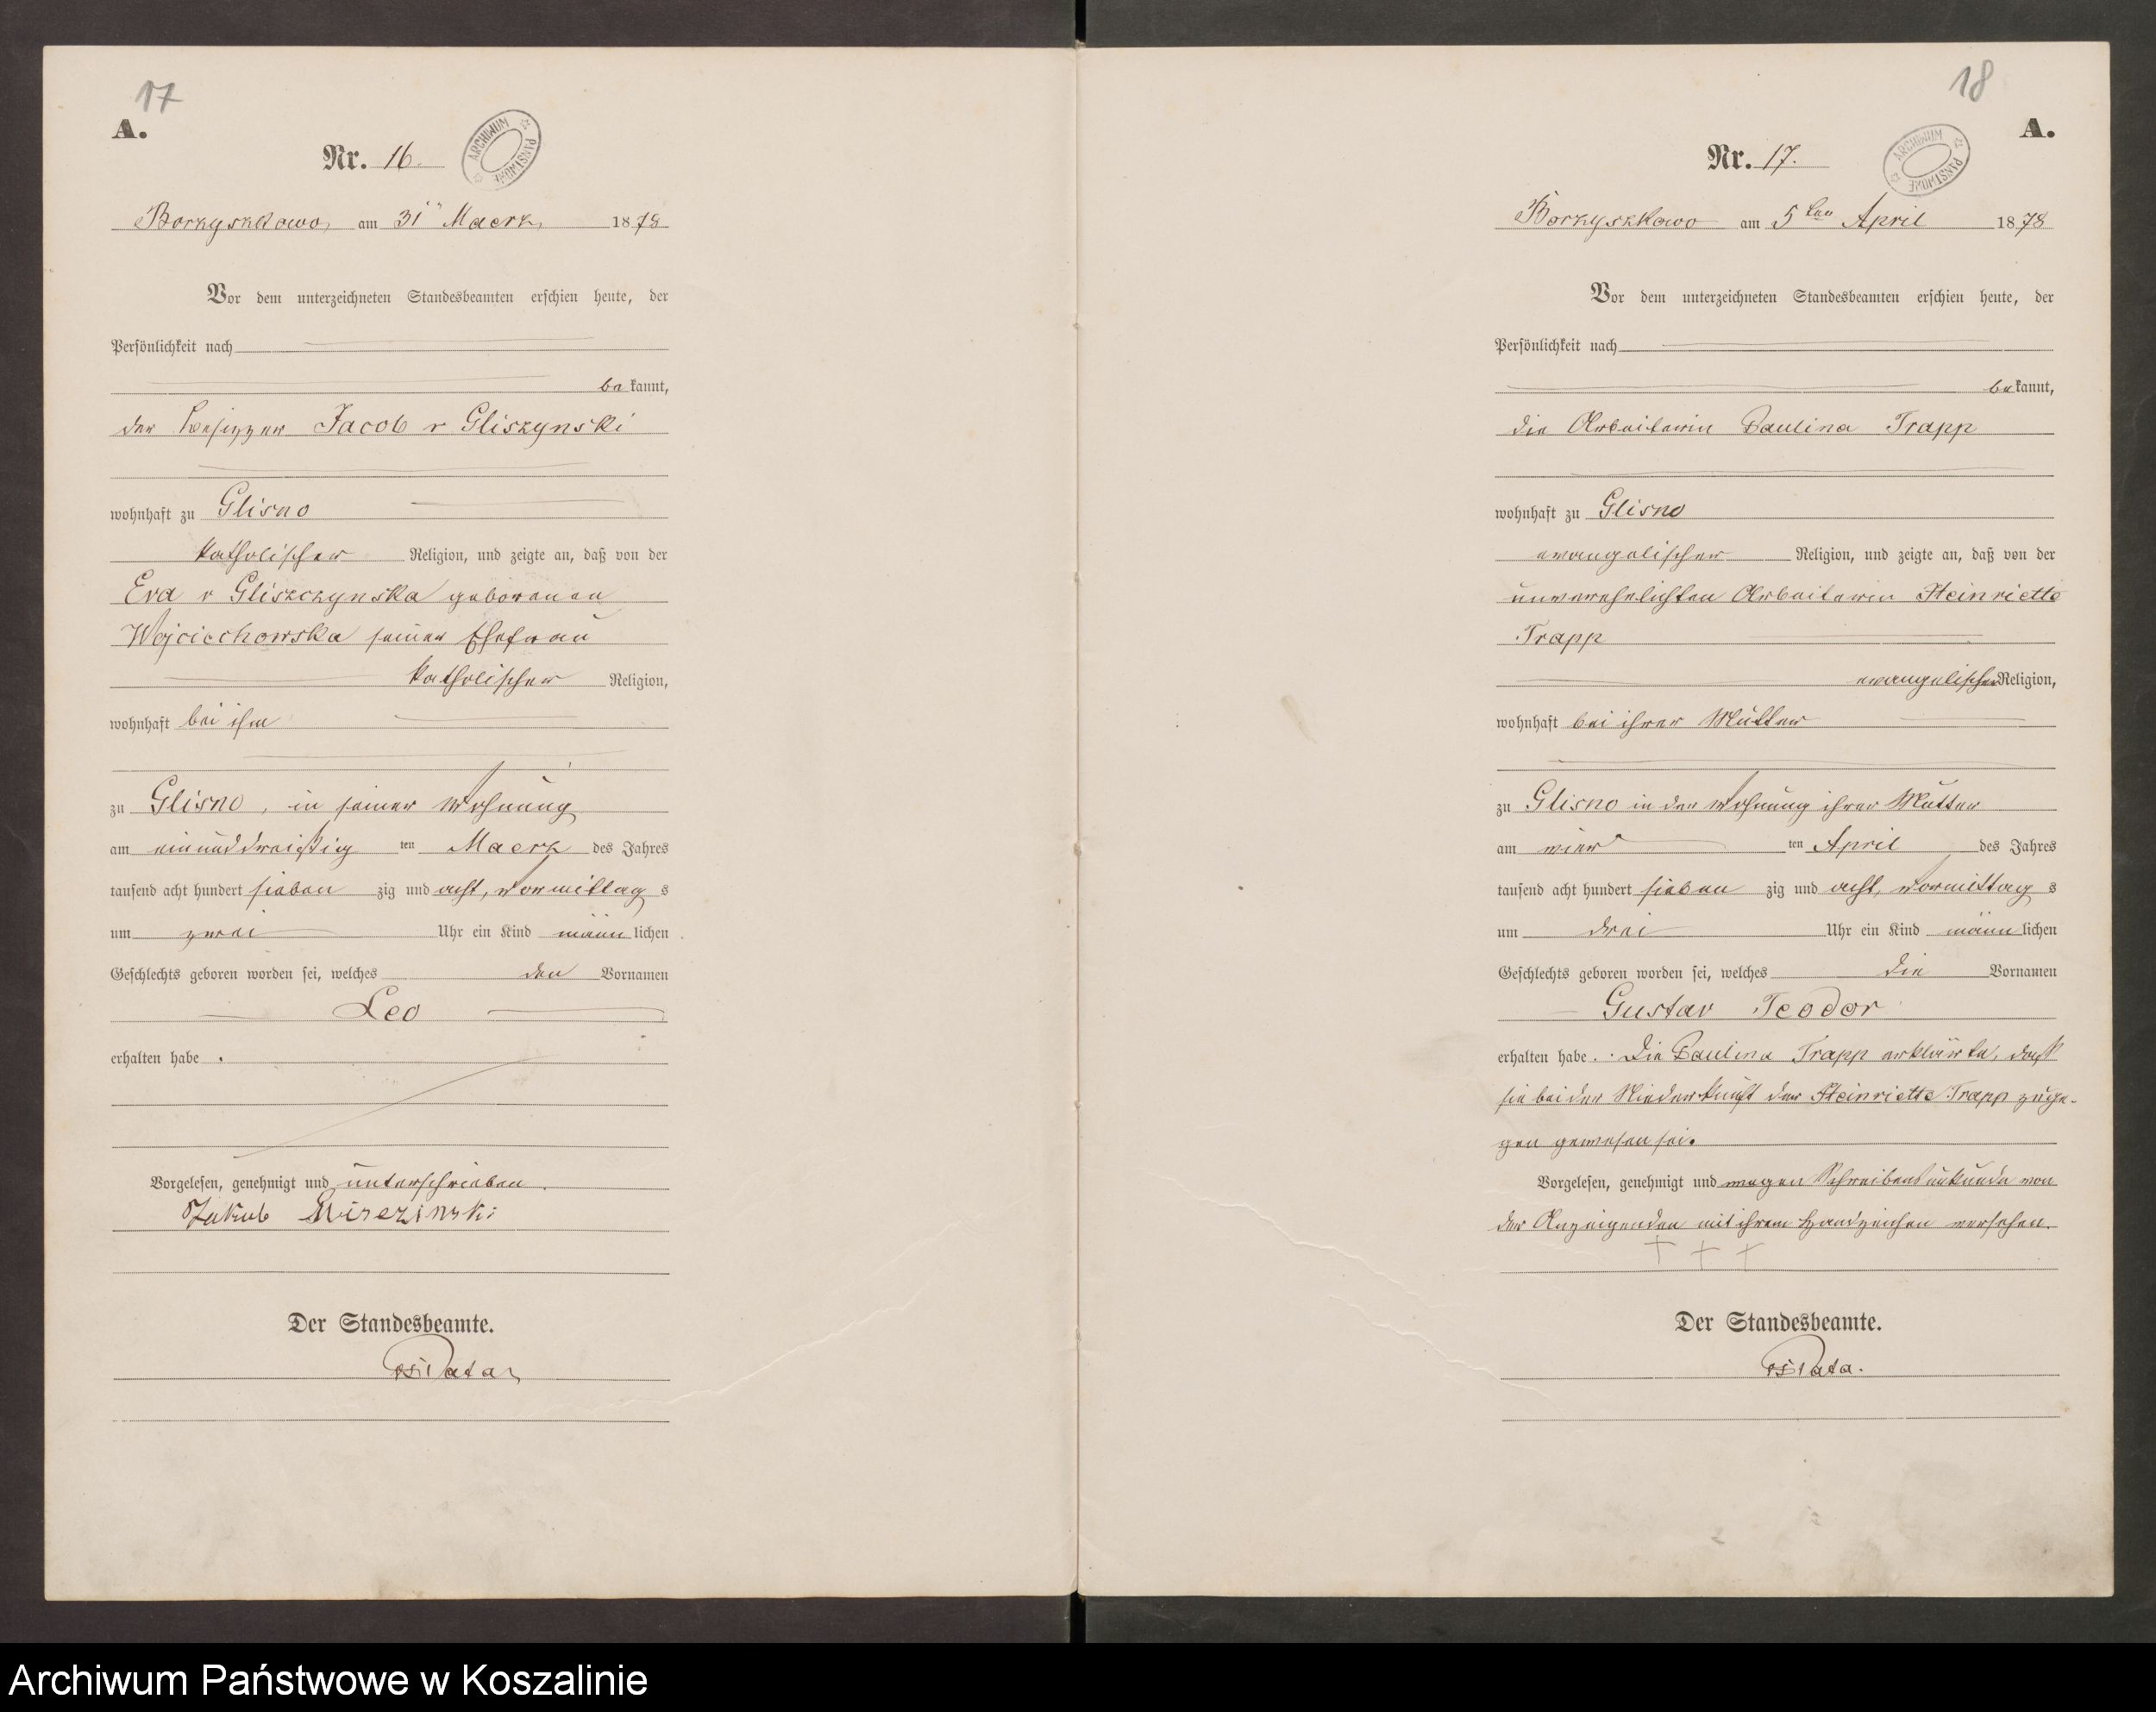 17
A.
Nr. 16.
ARCHIWUM PAŃSTWOWE
Borzyszkowo, am 31ⁿ Maerz, 1878
Vor dem unterzeichneten Standesbeamten erschien heute, der
Persönlichkeit nach
bekannt,
der Besitzer Jacob v Gliszynski
wohnhaft zu Glisno
katholischer Religion, und zeigte an, daß von der
Eva v Gliszczynska geborenen
Wojciechowska seiner Ehefrau
katholischer Religion,
wohnhaft bei ihm
zu Glisno, in seiner Wohnung
am einunddreißig ten Maerz des Jahres
tausend acht hundert siebenzig und acht, vormittags
um zwei Uhr ein Kind männlichen
Geschlechts geboren worden sei, welches den Vornamen
Leo
erhalten habe.
Vorgelesen, genehmigt und unterschrieben.
Jakub
Der Standesbeamte.
Pata
18
A.
Nr. 17.
ARCHIWUM PAŃSTWOWE
Borzyszkowo am 5ten April 1878
Vor dem unterzeichneten Standesbeamten erschien heute, der
Persönlichkeit nach
bekannt,
die Arbeiterin Paulina Trapp
wohnhaft zu Glisno
evangelischer Religion, und zeigte an, daß von der
unverehelichten Arbeiterin Heinriette
Trapp
evangelischer Religion,
wohnhaft bei ihrer Mutter
zu Glisno in der Wohnung ihrer Mutter
am vier ten April des Jahres
tausend acht hundert siebenzig und acht, vormittags
um drei Uhr ein Kind männlichen
Geschlechts geboren worden sei, welches die Vornamen
Gustav Teodor
erhalten habe. Die Paulina Trapp erklärte, daß
sie bei der Niederkunft der Heinriette Trapp zuge-
gen gewesen sei.
Vorgelesen, genehmigt und wegen Schreibensunkunde von
der Anzeigenden mit ihrem Handzeichen versehen.
+ + +
Der Standesbeamte.
Pata.
Archiwum Państwowe w Koszalinie